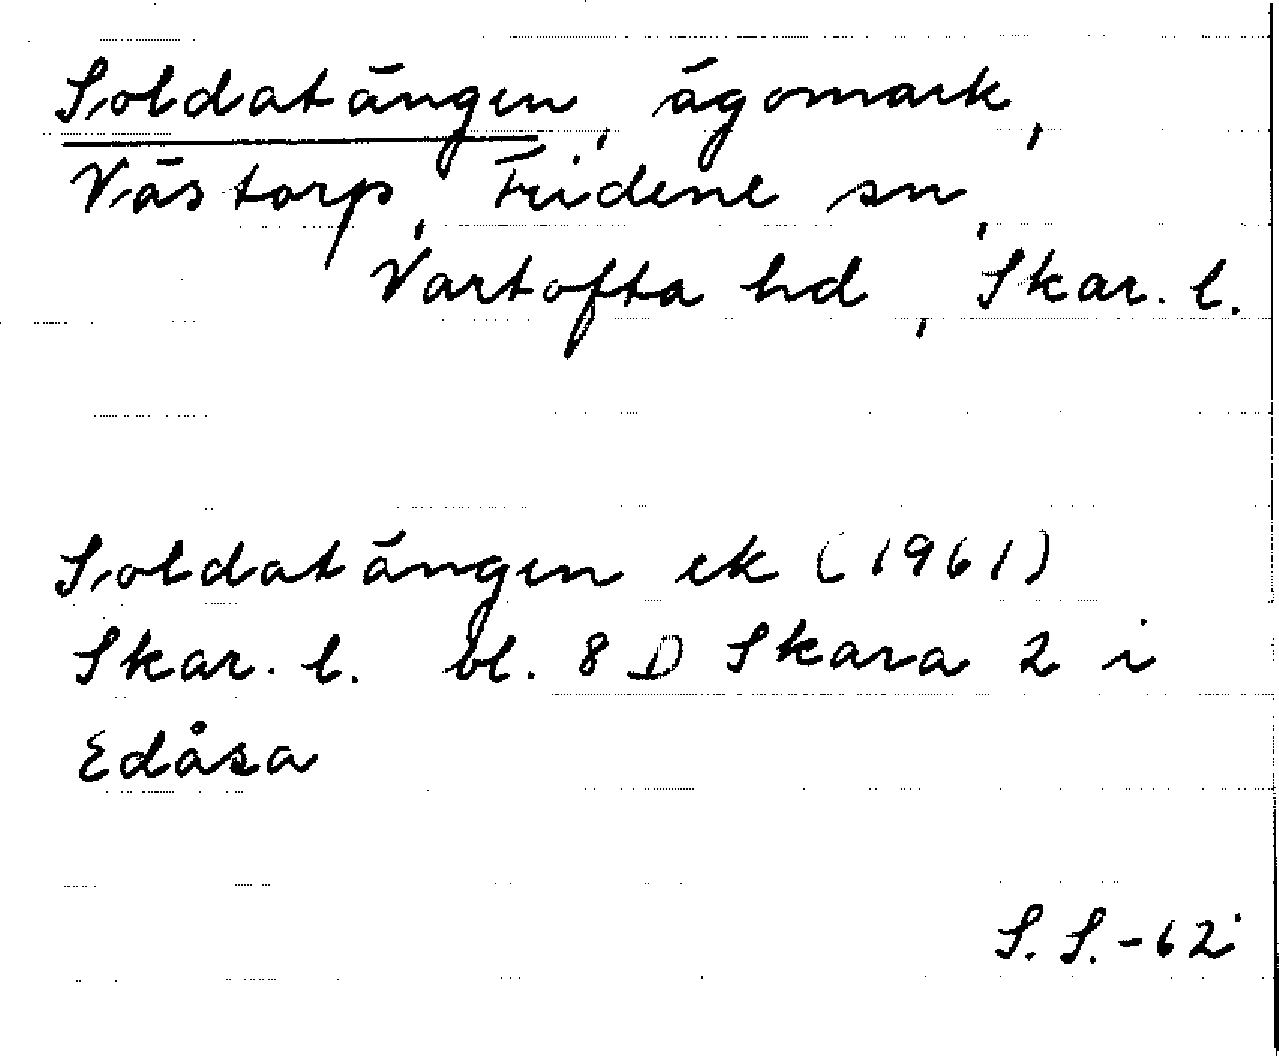 Soldatängen, ägomark,
Västorp, Fridene sn,
Vartofta hd, Skar. l.
Soldatängen ek (1961)
Skar. l. bl. 8 D Skara 2 i
Edåsa
S. S. -62